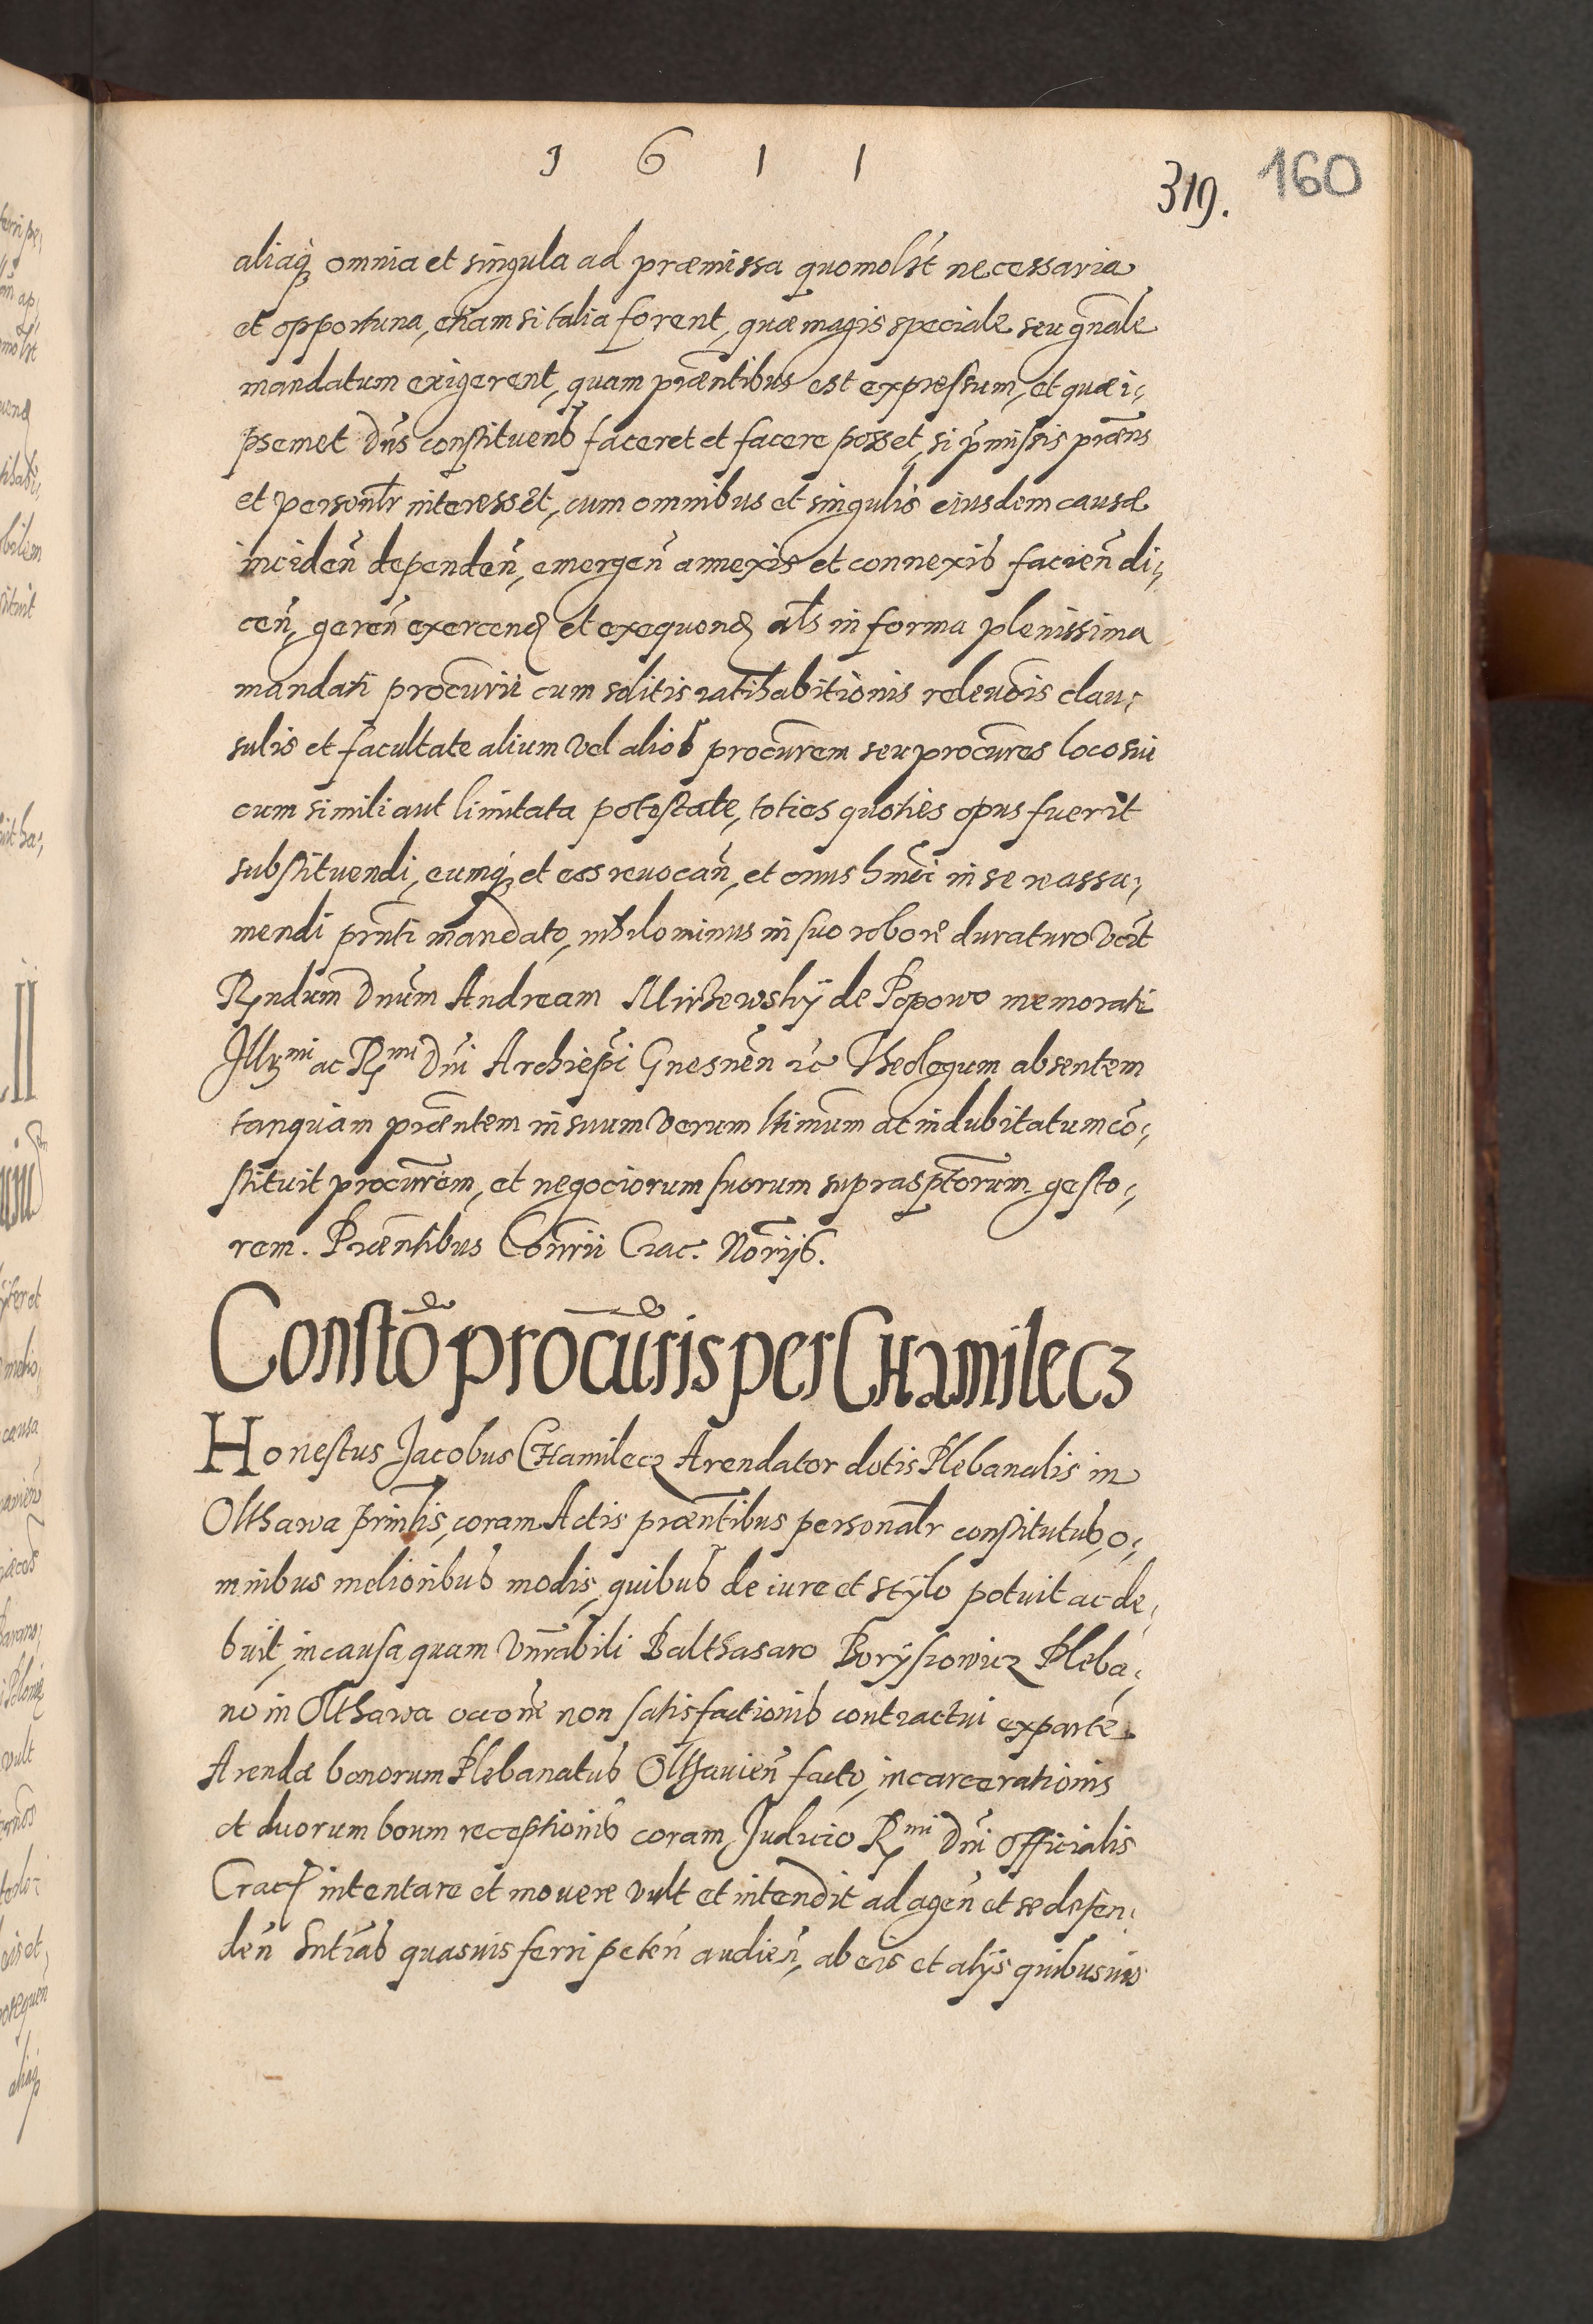 1 6 1 1
319. 160
aliaq; omnia et singula ad præmissa quomolt necessaria
et opportuna, etiam si talia forent, quæ magis speciale seu gñale
mandatum exigerent, quam præñtibus est expressum, et quæ i¬
psemet Dñs constituens faceret et facere posset, si p̃missis præñs
et personlr interesset, cum omnibus et singulis eiusdem causæ
inciden̄ dependen̄, emergen̄ annexis et connexis facien̄ di¬
cen̄, geren̄ exercend et exequend als in forma plenissima
mandati procurii cum solitis ratihabitionis releuōis clau¬
sulis et facultate alium vel alios procurem seu procures loco sui
cum simili aut limitata potestate, toties quoties opus fuerit
substituendi, eumq; et eos reuocan̄, et onus hmōi in se reassu¬
mendi pñti mandato, nihilominus in suo robore duraturo
Rndum Dnum Andream de Popowo memorati
Illmi ac Rmi Dñi Archiepi Gnesnen̄ etc Theologum absentem
tanquam præntem in suum verum ltimum ac indubitatum cō¬
stituit procurem, et negociorum suorum suprasptorum gesto¬
rem. Præntibus Consrii Crac. Norijs.
Constō procuris per CHamilecz
Honestus Jacobus CHamilecz Arendator dotis Plebanalis in
Olthawa prinlis, coram Actis præntibus personalr constitutus, o¬
mnibus melioribus modis, quibus de iure et stylo potuit ac de¬
buit, in causa quam Vnrabili Balthasaro Boryszowicz Pleba¬
no in Olthawa occōne non satisfactionis contractui ex parte
Arendæ bonorum Plebanatus Olthauien̄ facto, incarcerationis
et duorum boum receptionis coram Judicio Rmi Dñi Officialis
Crac intentare et mouere vult et intendit ad agen̄ et se defen¬
den̄ Sntias quasuis ferri peten̄ audien̄, ab eis et alijs quibusuis